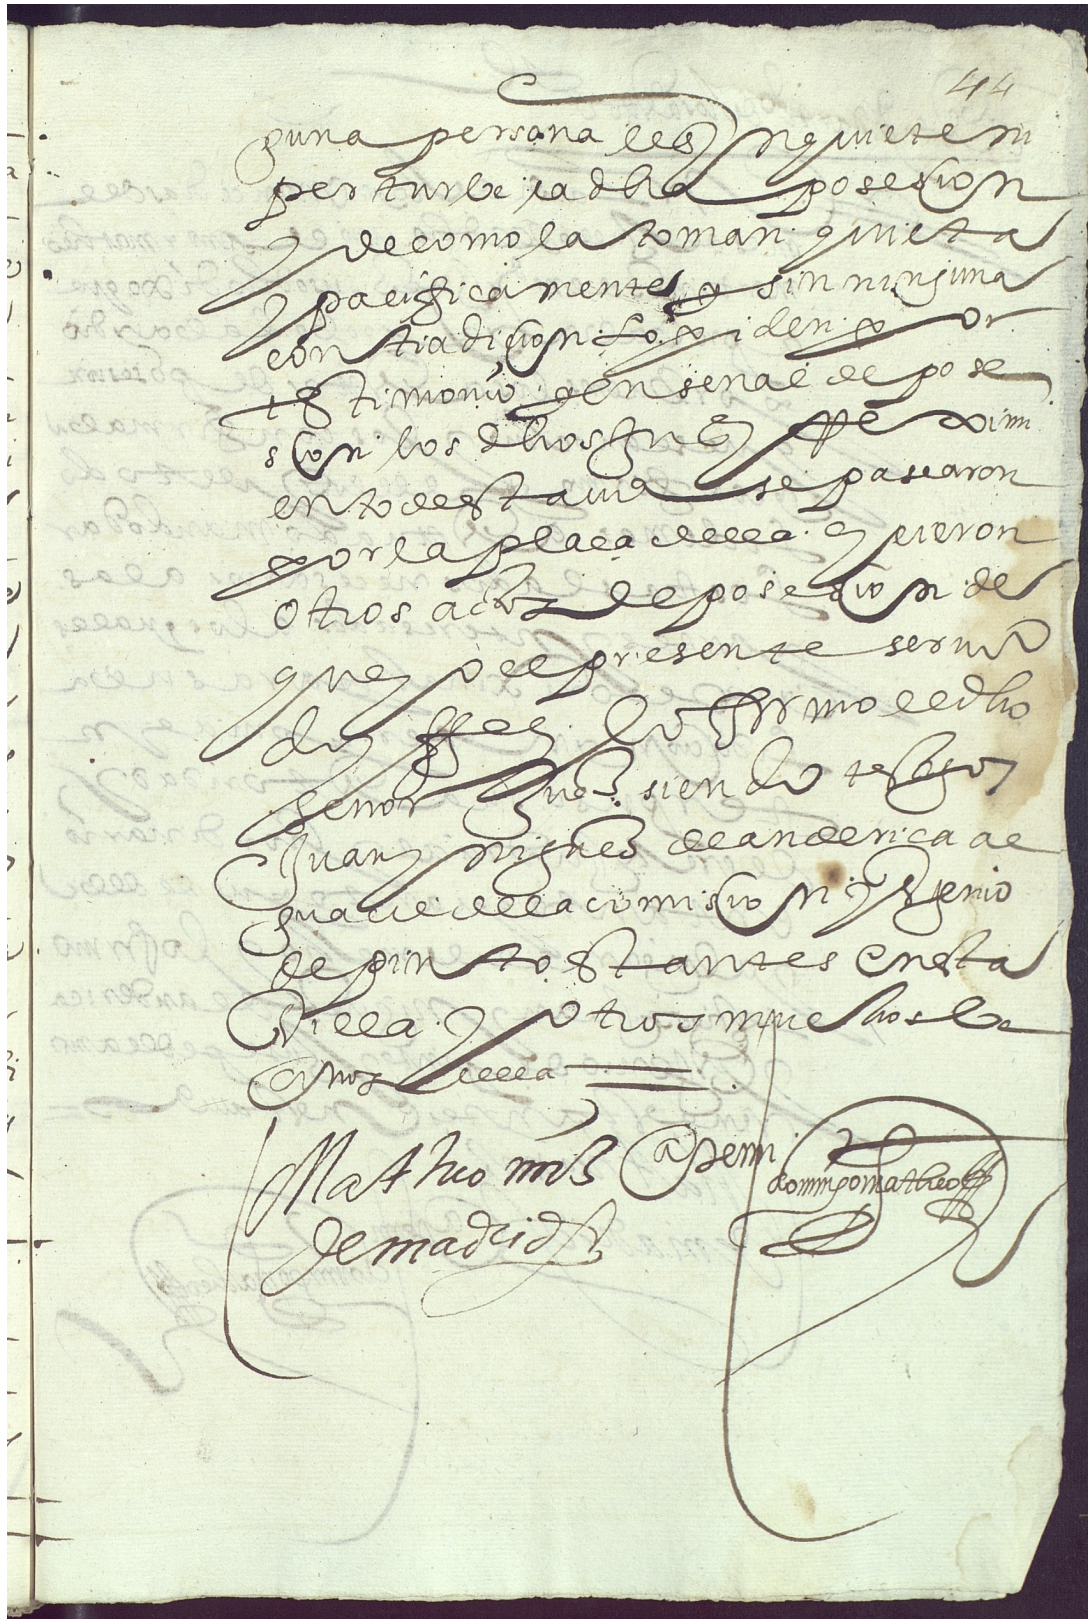 44
guna persona les ynquiete ni
perturbe la dha posesion
y de como la toman quieta
y pacificamente y sin ninguna
contradicion lo piden por
testimonio y en señal de pose
sion los dhos
ento desta villa se pasearon
por la plaça della y yieron
otros actos de posesion de
que yo el presente servno
doy ffee y lo firmo el dho
señor Juez siendo testigos
Juan yñiguez de anderica al
guacil de la comision y Eugenio
de pinto estantes en esta
villa y otros muchos be
cinos della
Matheo mrs Ante mi
de madrid domingo matheo